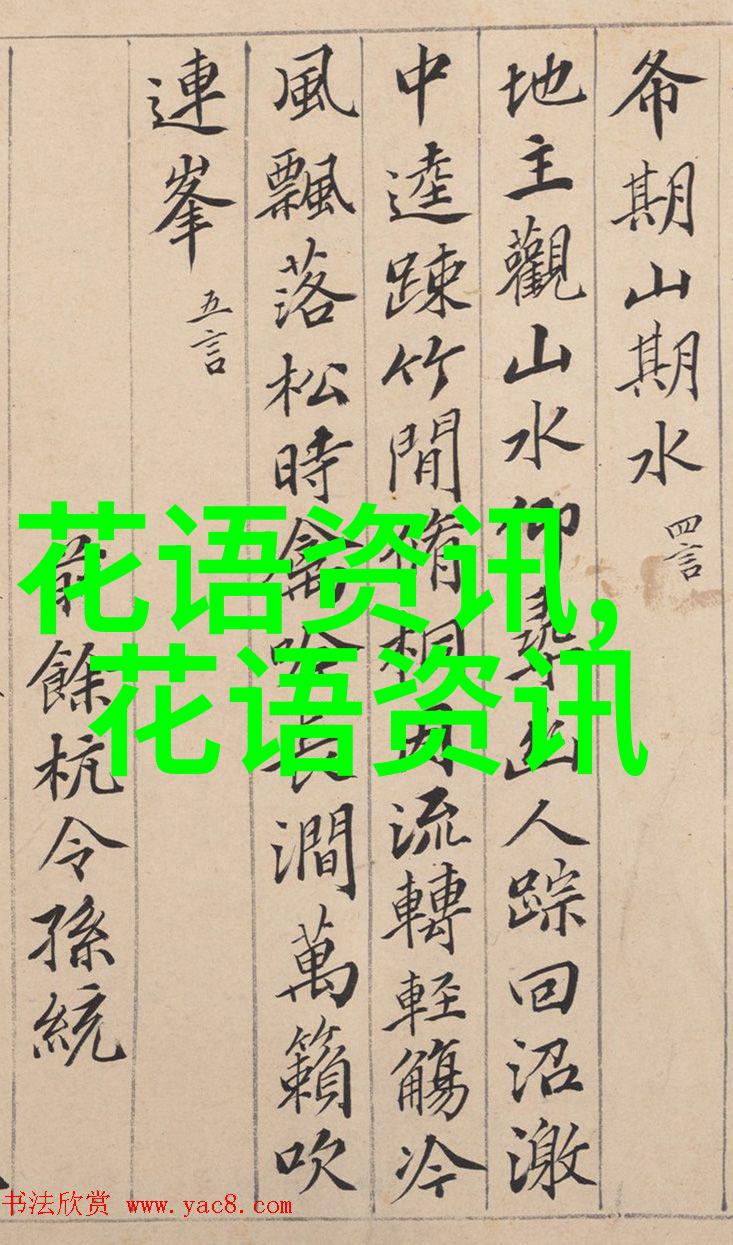 希期山期水 四言
地主觀山水仰尋幽人踪回沼激
中逵踈竹間脩桐因流轉輕觴冷
風飄落松時禽吟長澗萬籟吹
連峯 五言
前餘杭令孫統
花语资讯,
花语资讯
书法欣赏 www.yac8.com